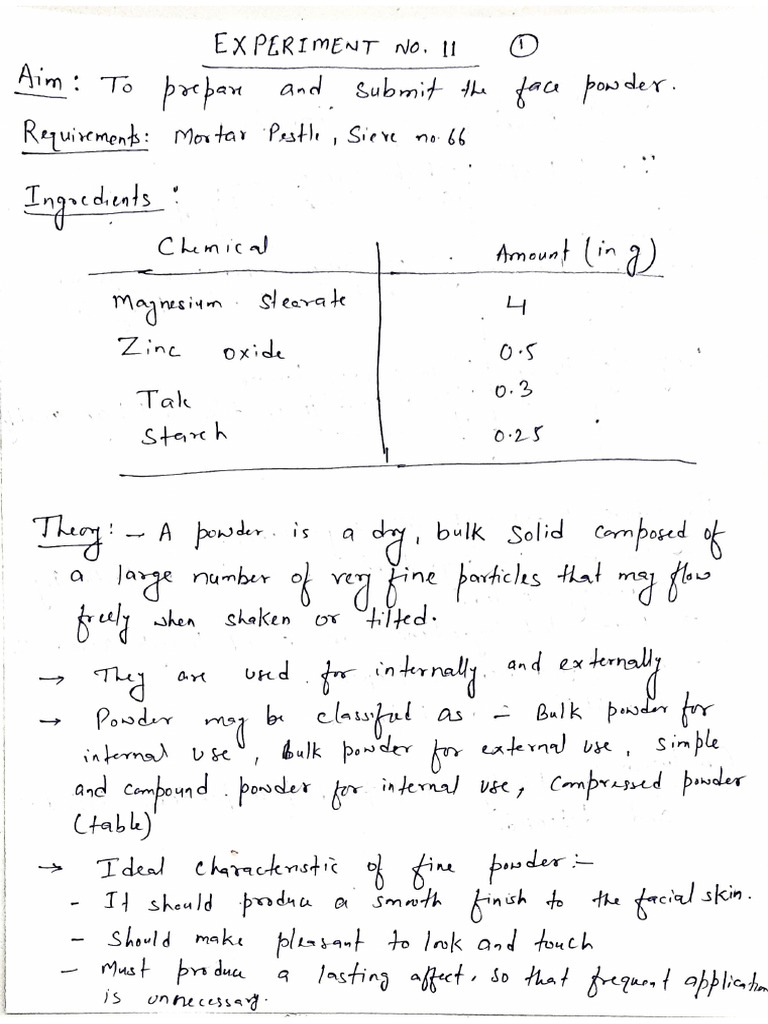 EXPERIMENT NO. 11 ①
Aim: To prepare and submit the face powder.
Requirements: Mortar Pestle, Sieve no. 66
Ingredients:
Chemical Amount (in g)
Magnesium Stearate 4
Zinc oxide 0.5
Talc 0.3
Starch 0.25
Theory: - A powder is a dry, bulk solid composed of
a large number of very fine particles that may flow
freely when shaken or tilted.
→ They are used for internally and externally
→ Powder may be classified as - Bulk powder for
internal use, bulk powder for external use, simple
and compound powder for internal use, compressed powder
(table)
→ Ideal characteristic of fine powder:-
- It should produce a smooth finish to the facial skin.
- Should make pleasant to look and touch
- Must produce a lasting affect, so that frequent application
is unnecessary.